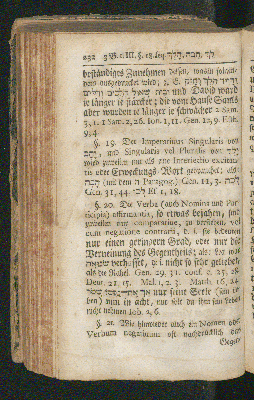 232
beständiges Zunehmen dessen, womit solches
ausgedruckt wird; z. E. וידוד הלך וחזק
ובית שאול הלכים ודלים und David ward
je länger je stärcker; die vom Hause Sauls
aber wurden je länger je schwächer 2 Sam.
3, 1. 1 Sam. 2, 26. Jon. 1, 11. Gen. 12, 9. Esth.
9, 4
§. 19. Der Imperativus Singularis von
und Singularis vel Pluralis von
wird zuweilen nur als eine Interjectio excitan-
tis oder Erweckungs-Wort gebrauchet; als:
(mit dem ה Paragog.) Gen. 11, 3.
Gen. 31, 44. לכו Ef 1, 18.
§. 20. Der Verba (auch Nomina und Par-
ticipia) affirmantia, so etwas bejahen, sind
zuweilen nur comparative, zu verstehen, vel
cum negatione contrarii, d. i. sie bedeuten
nur einen geringern Grad, oder nur die
Verneinung des Gegentheils; als: Lea war
שנואה verhasset, d. i. nicht so sehr geliebet
als die Rahel. Gen. 29, 31. conf. c. 25, 28
Deut. 21, 15. Mal. 1, 2. 3. March. 16, 24
אך את נפשו שמר nur seine Seele (sein Le-
ben) nim in acht, nur solt du ihm sein Leben
nicht nehmen Iob. 2, 6.
§. 21. Wie hinwieder auch ein Nomen oder
Verbum negativum oft nachdrücklich das
Gegen-